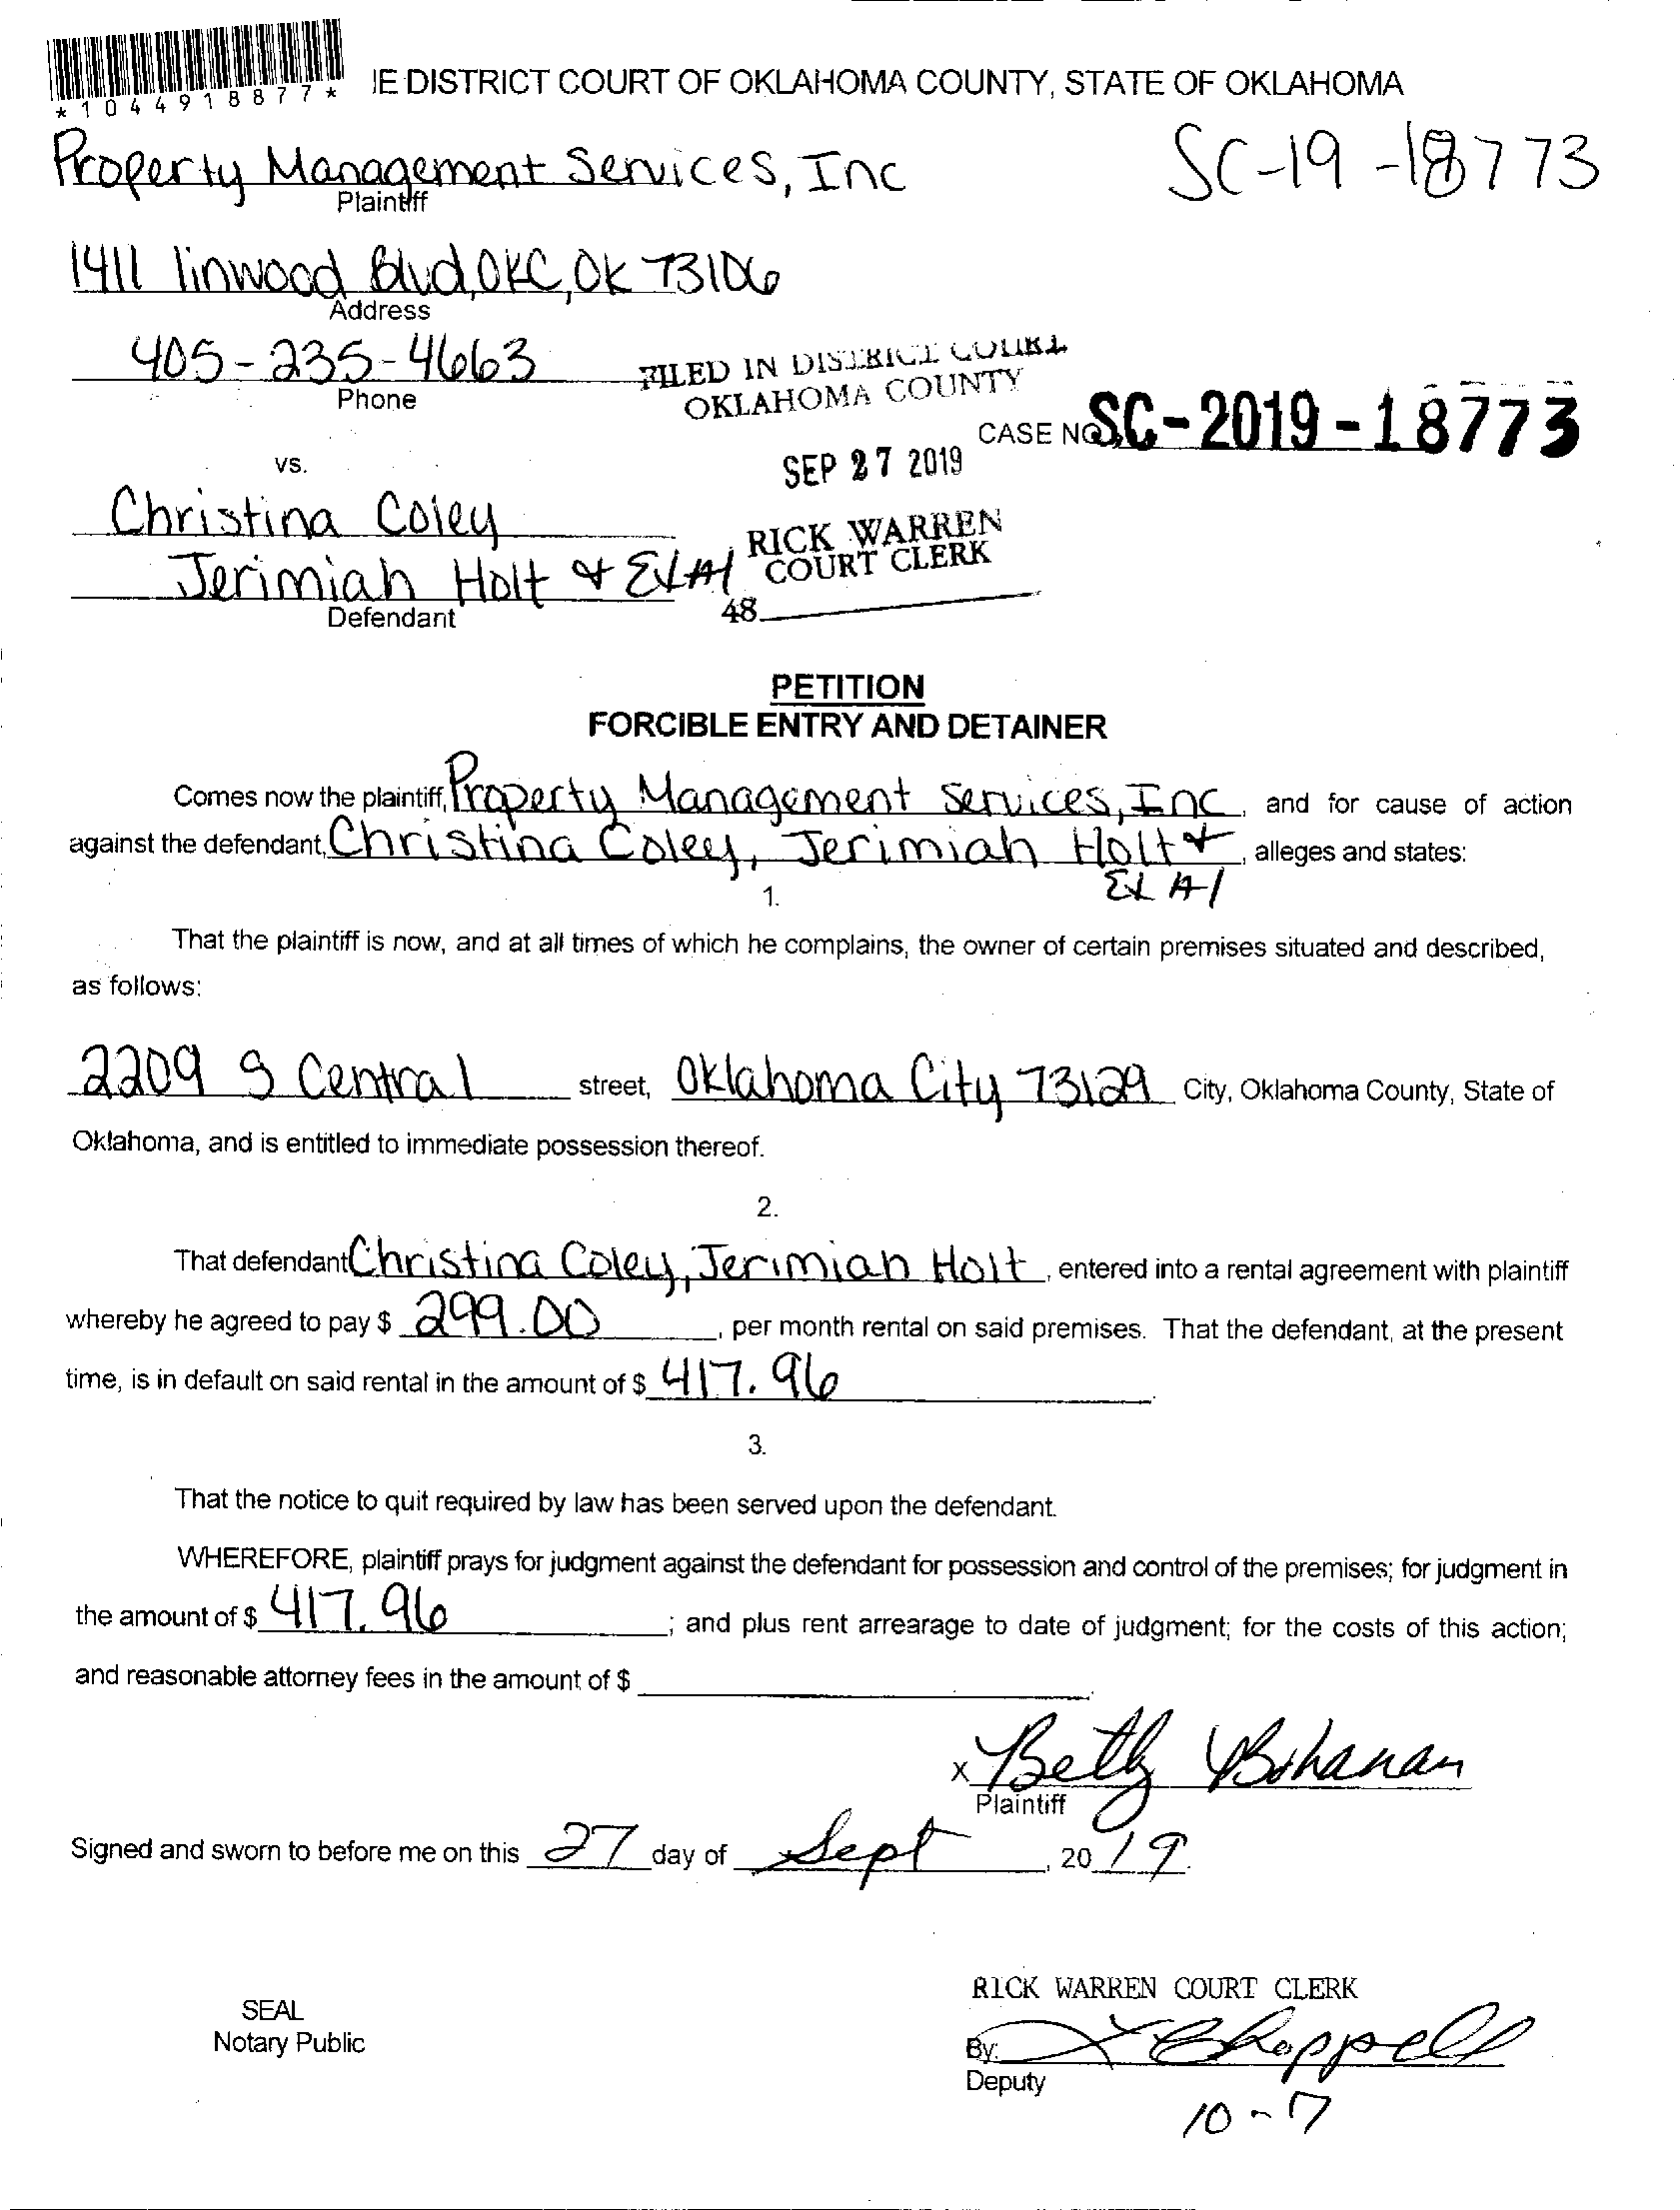 *1044918877*
IE DISTRICT COURT OF OKLAHOMA COUNTY, STATE OF OKLAHOMA
Property Management Services, Inc
SC-19-18773
Plaintiff
1411 linwood Blvd, OKC, OK 73106
Address
405-235-4663
Phone
FILED IN DISTRICT COURT
OKLAHOMA COUNTY
CASE NO. SC-2019-18773
SEP 27 2019
vs.
Christina Coley
RICK WARREN
COURT CLERK
Jerimiah Holt &
48
Defendant
PETITION
FORCIBLE ENTRY AND DETAINER
Comes now the plaintiff, Property Management Services, Inc, and for cause of action
against the defendant, Christina Coley, Jerimiah Holt &, alleges and states:
1.
That the plaintiff is now, and at all times of which he complains, the owner of certain premises situated and described,
as follows:
2209 S Central street, Oklahoma City 73129 City, Oklahoma County, State of
Oklahoma, and is entitled to immediate possession thereof.
2.
That defendant Christina Coley, Jerimiah Holt, entered into a rental agreement with plaintiff
whereby he agreed to pay $ 299.00, per month rental on said premises. That the defendant, at the present
time, is in default on said rental in the amount of $ 417.96.
3.
That the notice to quit required by law has been served upon the defendant.
WHEREFORE, plaintiff prays for judgment against the defendant for possession and control of the premises; for judgment in
the amount of $ 417.96; and plus rent arrearage to date of judgment; for the costs of this action;
and reasonable attorney fees in the amount of $
x Betty Bohanan
Plaintiff
Signed and sworn to before me on this 27 day of Sept, 2019.
RICK WARREN COURT CLERK
SEAL
Notary Public
By: Chappell
Deputy
10-7